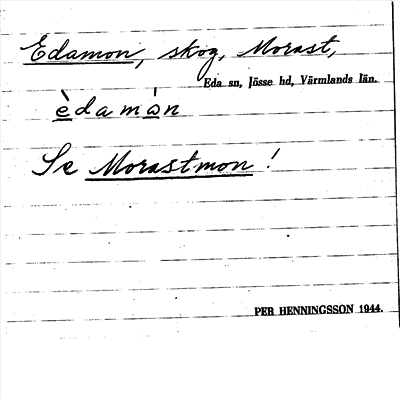 Edamon, skog, Morast,
Eda sn, Jösse hd, Värmlands län.
èdamòn
Se Morastmon!
PER HENNINGSSON 1944.